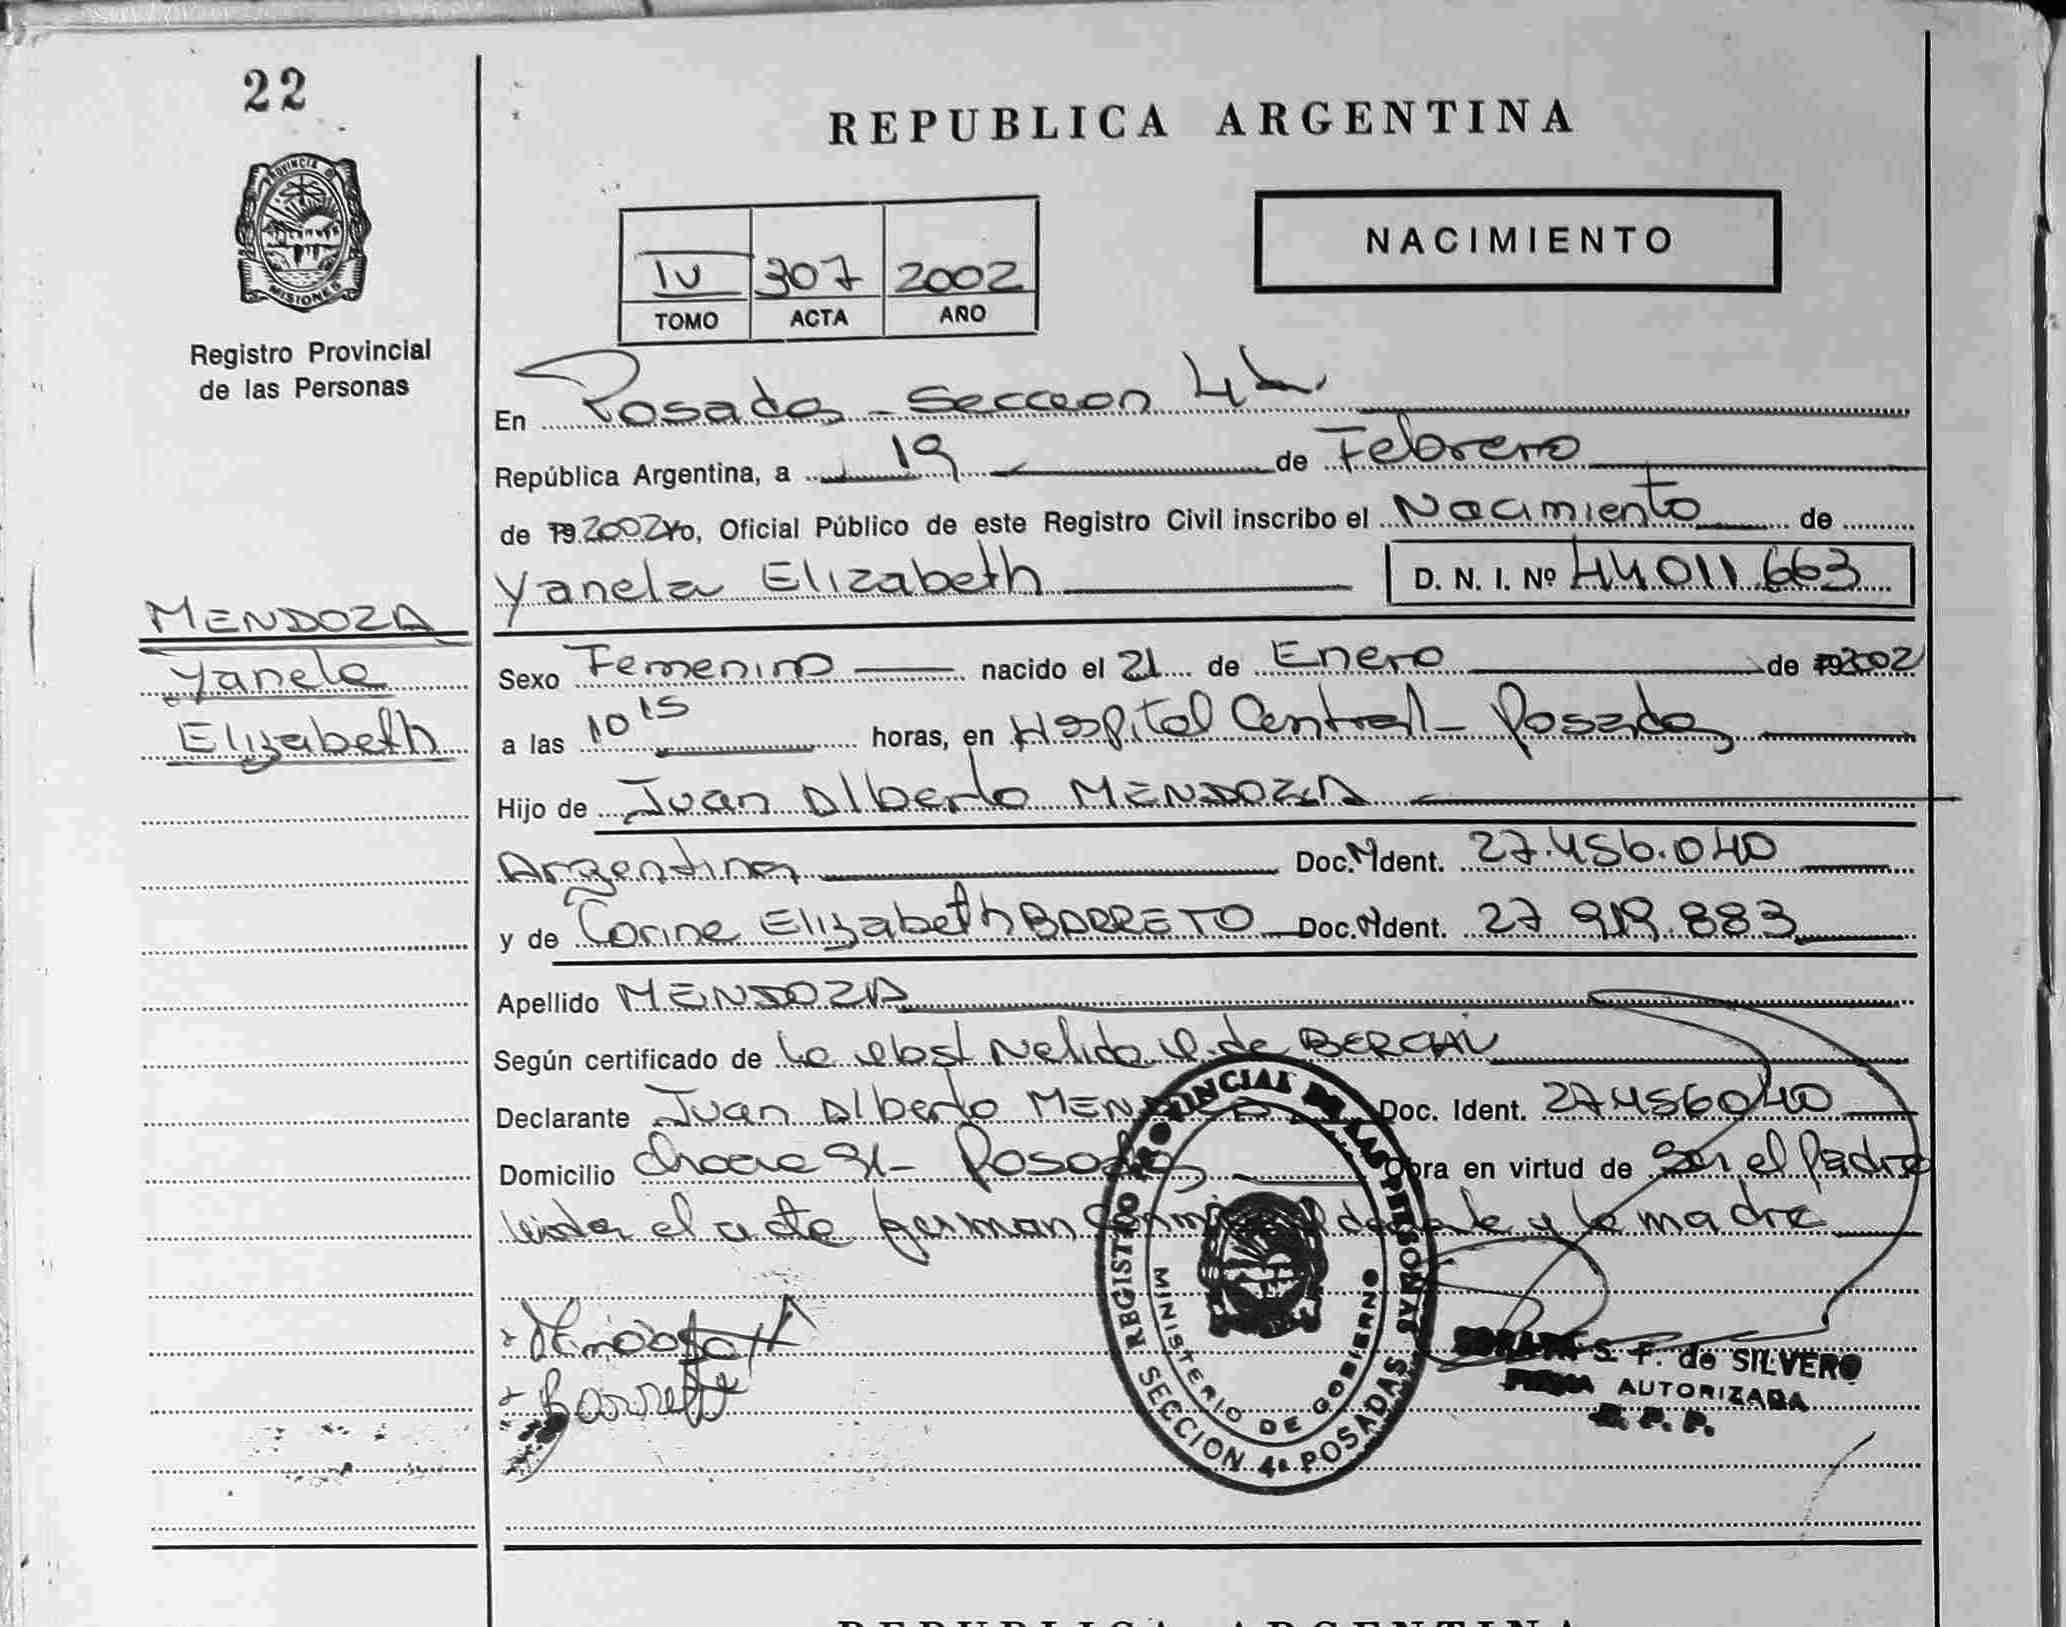 22
PROVINCIA DE
MISIONES
Registro Provincial
de las Personas
MENDOZA
Yanela
Elizabeth
REPUBLICA ARGENTINA
NACIMIENTO
IV 307 2002
TOMO ACTA AÑO
En Posadas - Seccion 4ta.
República Argentina, a 19 de Febrero
de 19 2002 Yo, Oficial Público de este Registro Civil inscribo el Nacimiento de
Yanela Elizabeth D. N. I. Nº 44.011.663
Sexo Femenino nacido el 21 de Enero de 2002
a las 10 15 horas, en Hospital Central - Posadas
Hijo de Juan Alberto MENDOZA
Argentinos Doc. Ident. 27.456.040
y de Corina Elizabeth BARRETO Doc. Ident. 27.919.883
Apellido MENDOZA
Según certificado de la obst Nelida de
Declarante Juan Alberto MENDOZA Doc. Ident. 27456040
Domicilio 31 - Posadas Obra en virtud de ser el Padre
el acta firman y la madre
Mendoza
Barreto
REGISTRO PROVINCIAL DE LAS PERSONAS
MINISTERIO DE GOBIERNO
SECCION 4a POSADAS
S. F. de SILVERO
FIRMA AUTORIZADA
R. P. P.
REPUBLICA ARGENTINA